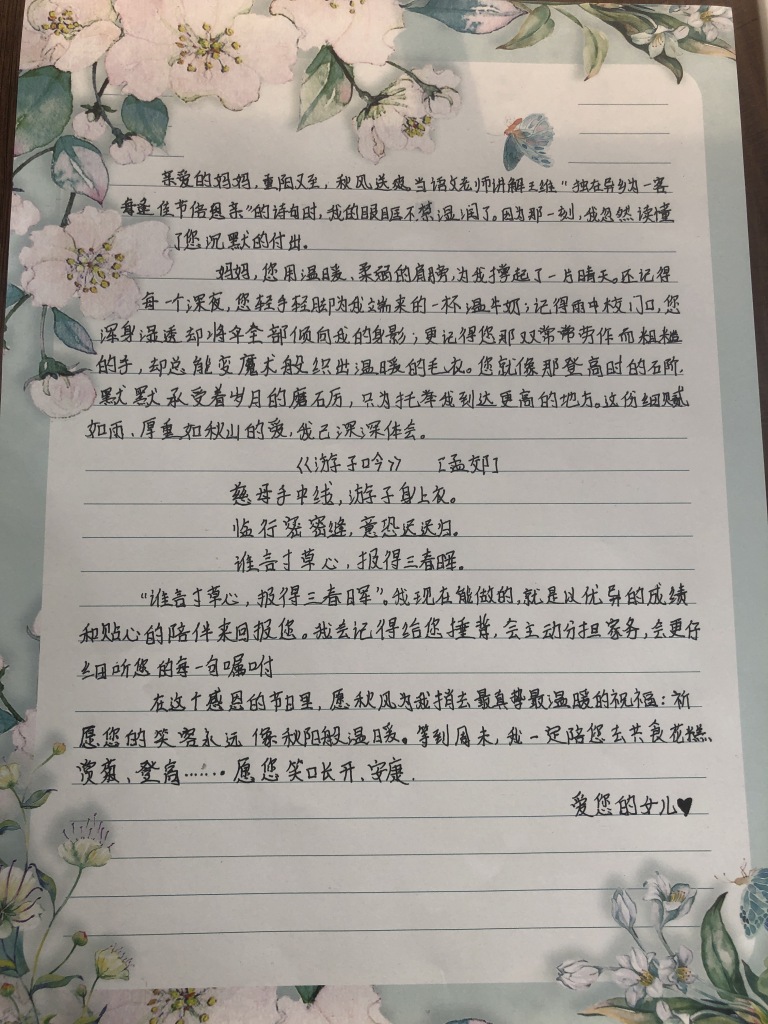 亲爱的妈妈，重阳又至，秋风送爽。当语文老师讲解王维"独在异乡为一客
每逢佳节倍思亲"的诗句时，我的眼眶不禁湿润了。因为那一刻，我忽然读懂
了您沉默的付出。
妈妈，您用温暖、柔弱的肩膀，为我撑起了一片晴天。还记得
每一个深夜，您轻手轻脚为我端来的一杯温牛奶；记得雨中校门口，您
浑身湿透却将伞全部倾向我的身影；更记得您那双常常劳作而粗糙
的手，却总能变魔术般织出温暖的毛衣。您就像那登高时的石阶，
默默承受着岁月的磨石厉，只为托举我到达更高的地方。这份细腻
如雨、厚重如秋山的爱，我已深深体会。
《游子吟》 [孟郊]
慈母手中线，游子身上衣。
临行密密缝，意恐迟迟归。
谁言寸草心，报得三春晖。
"谁言寸草心，报得三春晖"。我现在能做的，就是以优异的成绩
和贴心的陪伴来回报您。我会记得给您捶背，会主动分担家务，会更仔
细听您的每一句嘱咐
在这个感恩的节日里，愿秋风为我捎去最真挚最温暖的祝福：祈
愿您的笑容永远像秋阳般温暖。等到周末，我一定陪您去共食花糕、
赏菊、登高……愿您笑口长开、安康.
爱您的女儿♥